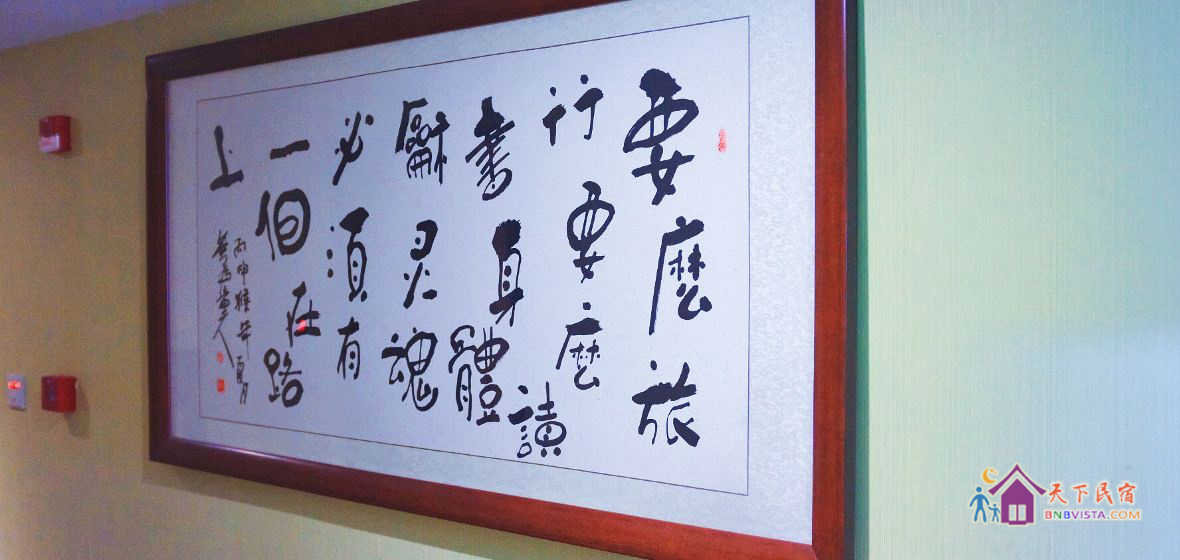 要麼旅
行要麼讀
書身體
龢灵魂
必須有
一個在路
上
丙申
天下民宿
BNBVISTA.COM